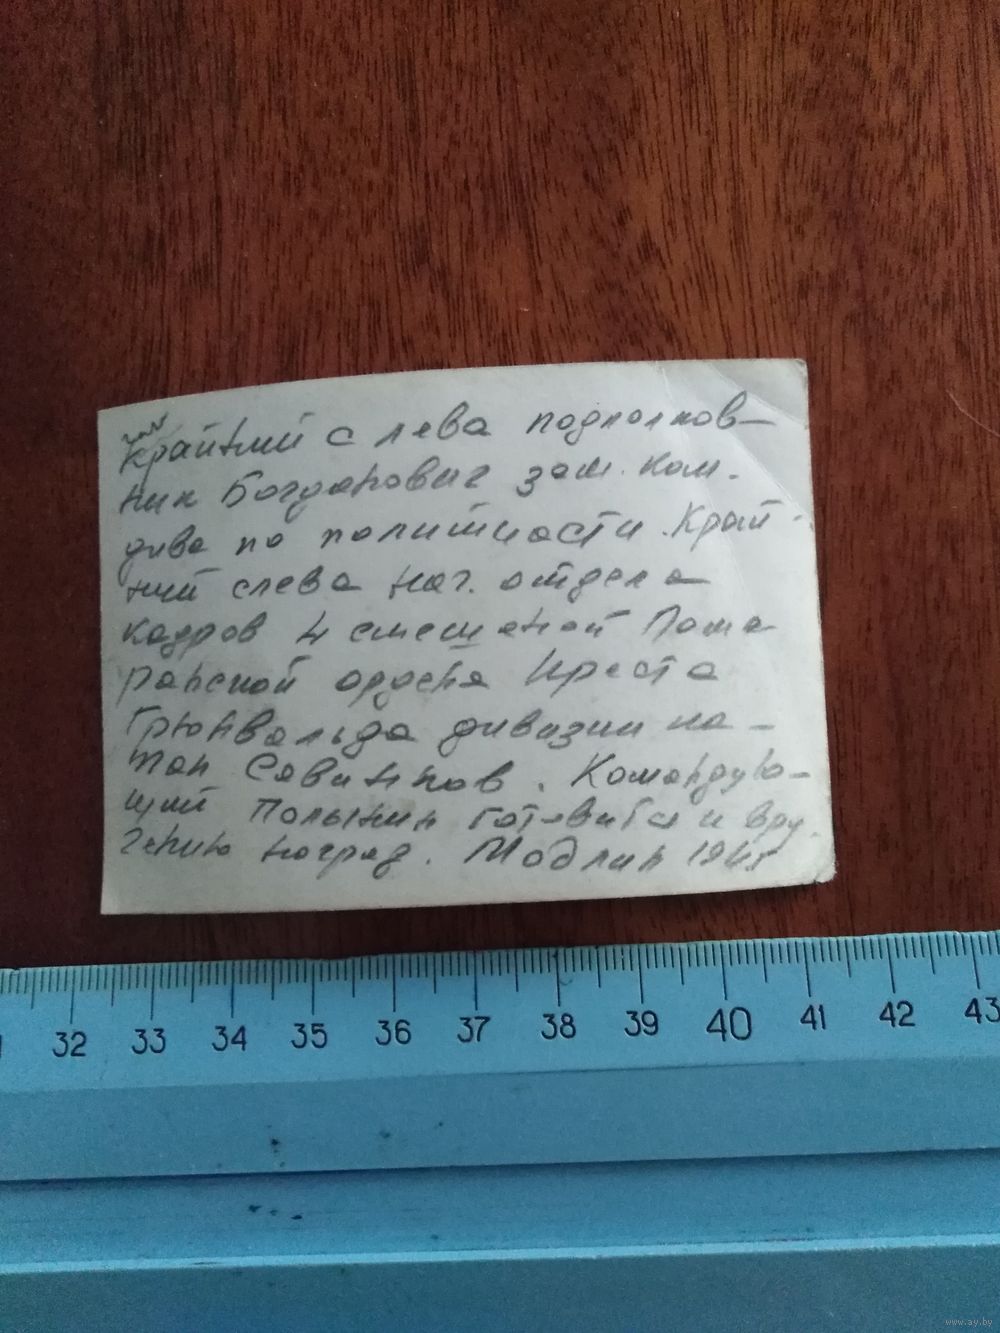 Крайний с лева подполков-
ник Богданович зам. ком.
дива по политчасти. Край-
ний слева нач. отдела
кадров 4 смешаной Пома
ранской ордена Креста
Грюнвальда дивизии ка-
тан Савинков. Командую-
щий Полынин готовится к вру.
чению наград. Модлин 1945
32 33 34 35 36 37 38 39 40 41 42 43
www.ay.by